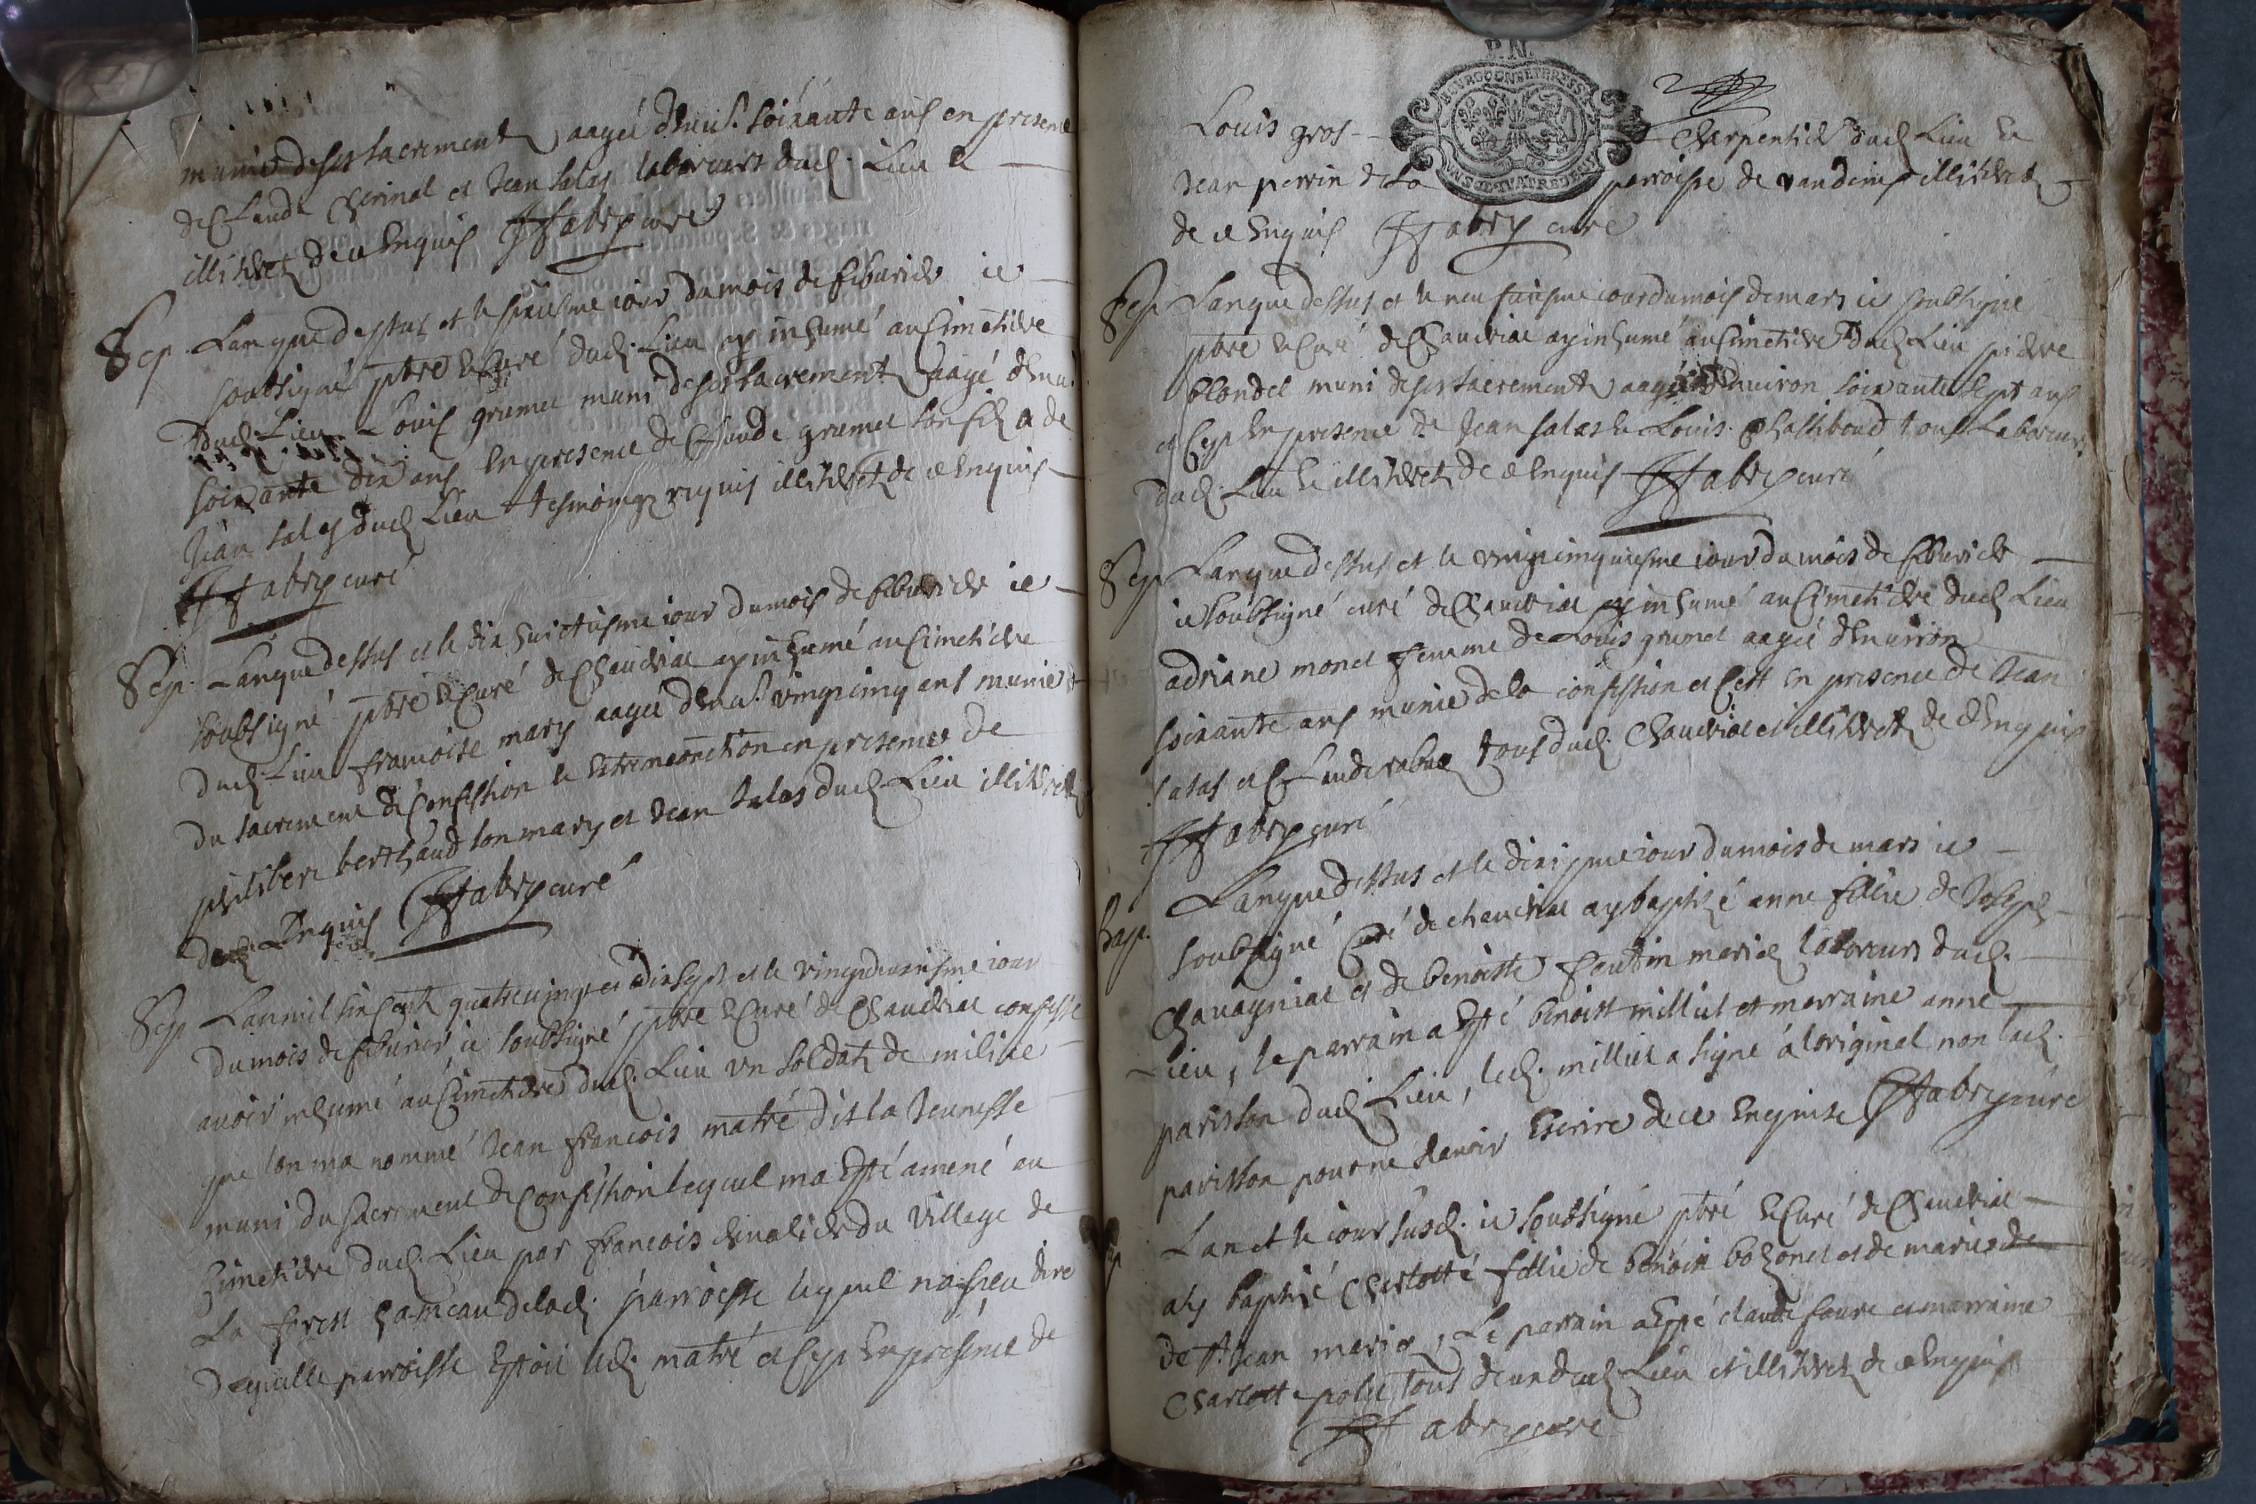 munie de ses sacrements aagée d'enui. soixante ans en presence
de Claude et Jean salas laboreurs dud. Lieu &
illiterez de ce Enquis Fabry curé
Sep. L'an que dessus et le sixiesme iour du mois de febvrier ie
soubsigné pbre & Curé dud. Lieu ay inhumé au Cimetiere
dud. Lieu Louis grumet muni de ses sacrements aagé d'enui.
soixante dix ans En presence de Claude grumet son fils & de
Jean salas dud. Lieu tesmoings requis illiterez de ce Enquis
Fabry curé
Sep. L'an que dessus et le dix huictiesme iour du mois de febvrier ie
soubsigné pbre & Curé de Chaveiriat ay inhumé au Cimetiere
dud. Lieu francoise mary aagée d'enui. vingt cinq ans munie
du sacrement de Confession & Extremeonction en presence de
philibert berthaud son mary et Jean salas dud. Lieu illiterez
de ce Enquis Fabry curé
Sep. L'an mil six Cents quatre uingt et dix sept et le vingt deuxiesme iour
du mois de feburier ie soubsigné pbre & Curé de Chaveiriat confesse
auoir inhumé au Cimetiere dud. Lieu vn soldat de milice
que l'on ma nommé Jean francois matré dit la Jeunesse
muni du sacrement de Confession lequel ma Esté amené au
Cimetiere dud. Lieu par francois du village de
La forest hameau de lad. parroisse lequel na sceu dire
de quelle parroisse Estoit led. matré et Ce En presence de
Louis gros charpentier dud. Lieu &
Jean perrin de la parroisse de vandeins illiterez
de ce Enquis Fabry curé
Sep. L'an que dessus et le neufuiesme iour du mois de mars ie soubsigné
pbre & Curé de Chaveiriat ay inhumé au Cimetiere dud. Lieu pierre
blondel muni de ses sacrements aagé d'enuiron soixante sept ans
et Ce En presence de Jean salas & Louis tous Laboreurs
dud. Lieu & illiterez de ce Enquis Fabry curé
Sep. L'an que dessus et le vingt cinquiesme iour du mois de febvrier
ie soubsigné curé de Chaveiriat ay inhumé au Cimetiere dud. Lieu
adriane monet femme de Louis grumet aagée d'enuiron
soixante ans munie de la confession et Cest En presence de Jean
salas et Claude tous dud. Chaveiriat et illiterez de ce Enquis
Fabry curé
bap. L'an que dessus et le dixiesme iour du mois de mars ie
soubsigné Curé de chaveiriat ay baptizé anne fillie de Joseph
Chavagniat et de benoiste mariez laboreurs dud.
Lieu, le parrain a Esté benoist milliet et marraine anne
parisson dud. Lieu, led. milliet a signé a l'original non lad.
parisson pour ne scavoir Escrire de ce Enquise Fabry curé
L'an et le iour susd. ie soubsigné pbre & Curé de Chaveiriat
ay baptizé Charlotte fillie de benoist bozonet et de marie de
de st. Jean mariez, Le parrain a Esté claude faure et marraine
Charlotte tous deux dud. Lieu et illiterez de ce Enquis
Fabry curé